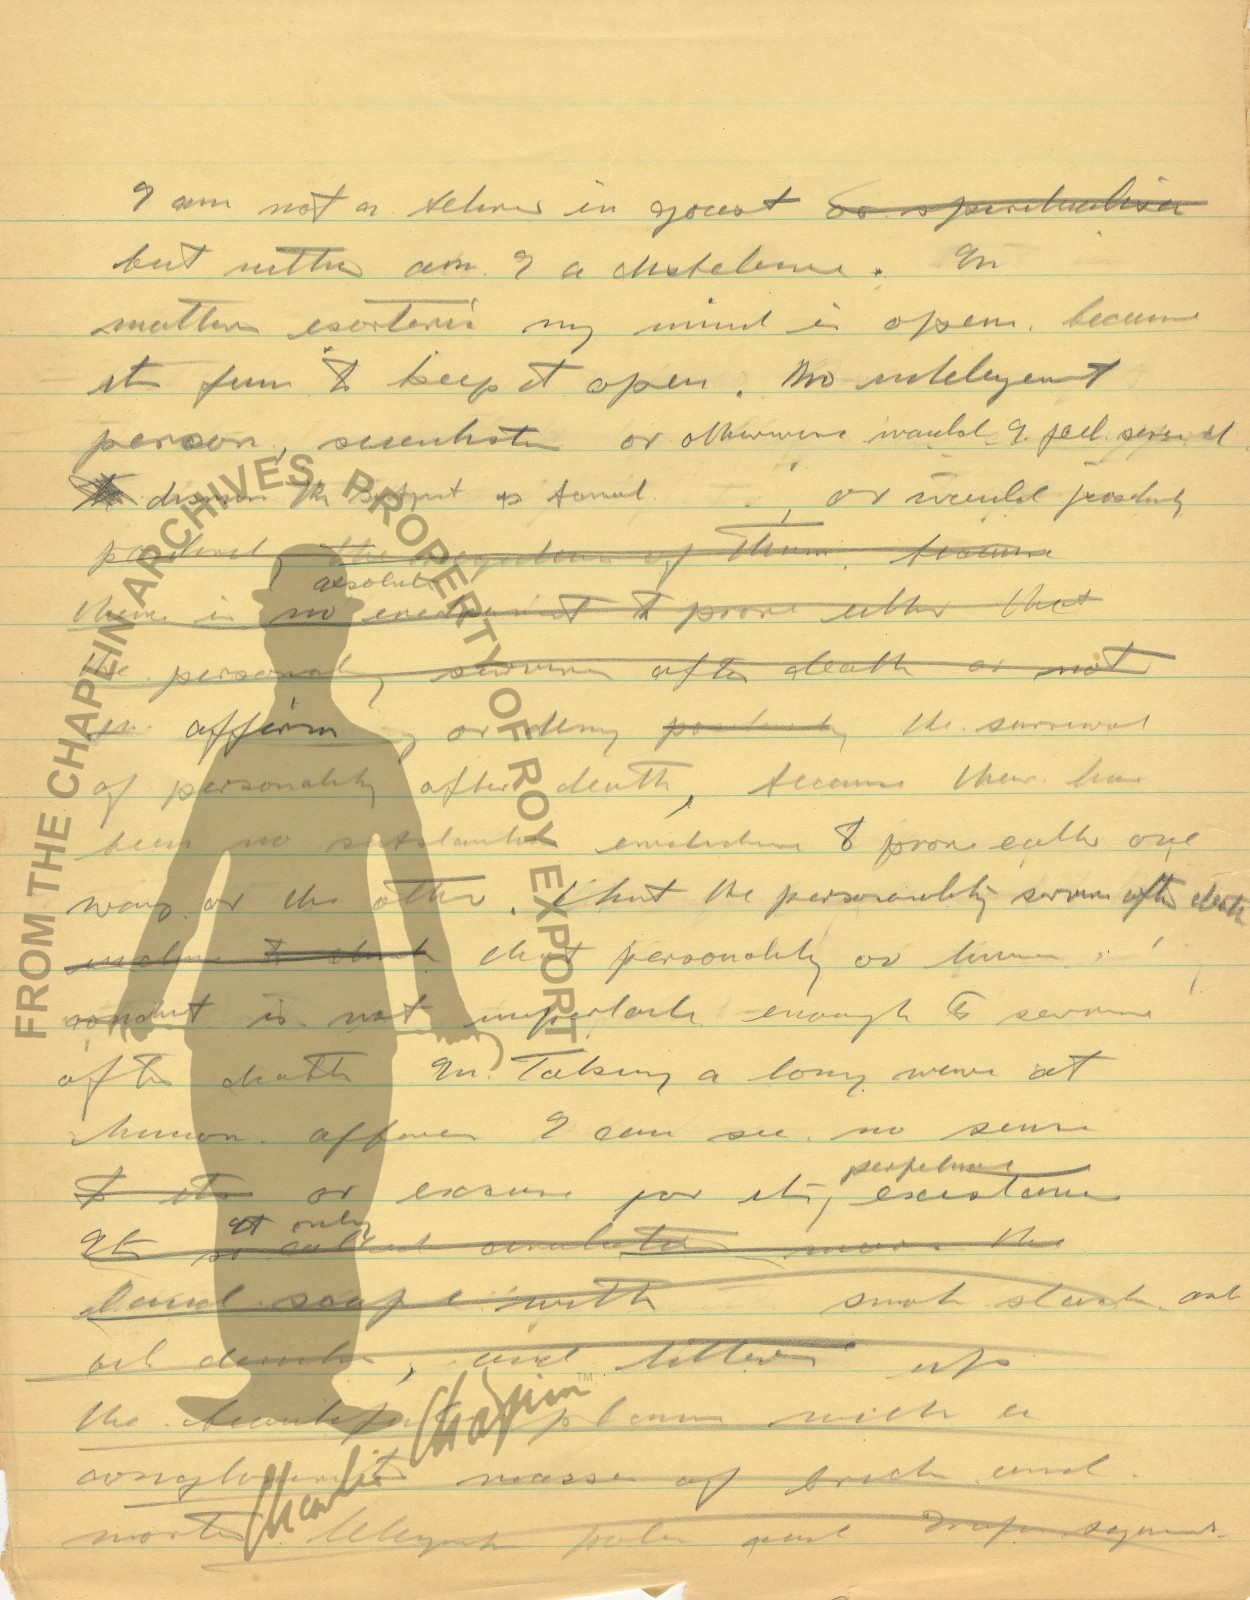 I am not a believer in goust so spiritualism
but neither am I a disbeliever. In
matters esorteric my mind is open, because
its fun to keep it open. No intelegent
person, scientists or otherwise would I feel
dismiss the subject as banal. or would positively
positively the negation of them because
absolute
there is no evidence to prove either that
the personality survives after death or not
affirm or deny positively the survival
of personality after death, because there have
been no substantial evidence to prove either one
way or the other. that the personality survive after death
incline to think that personality or human
conduct is not important enough to survive
after death In Taking a long view at
human affairs I can see no sense
perpetuie
to its or excuse for its existance
at only
Its so called the
land scape with smoke stacks and
oil derricks, and litters up
the beautiful plains with a
conglomerate masse of brick and
mortar telegraph poles and
FROM THE CHAPLIN ARCHIVES, PROPERTY OF ROY EXPORT
Charlie Chaplin™